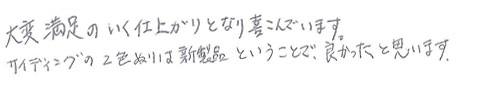 大変満足のいく仕上がりとなり喜こんでいます。
サイディングの2色ぬりは新製品ということで、良かったと思います.